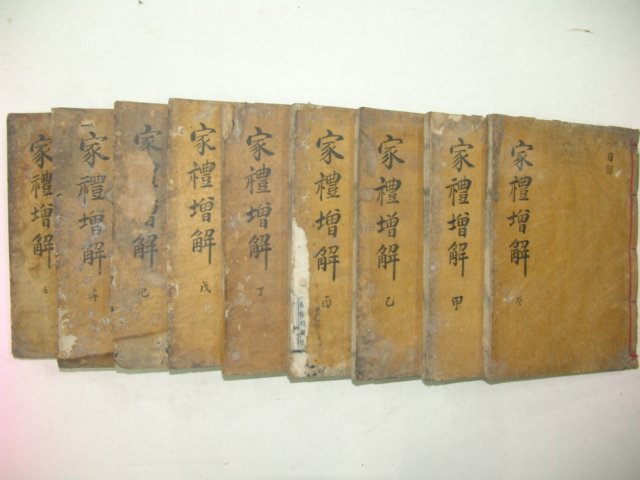 目錄
家禮增解
癸
家禮增解
甲
家禮增解
乙
家禮增解
丙
家禮增解
丁
家禮增解
戊
家禮增解
己
家禮增解
辛
家禮增解
壬